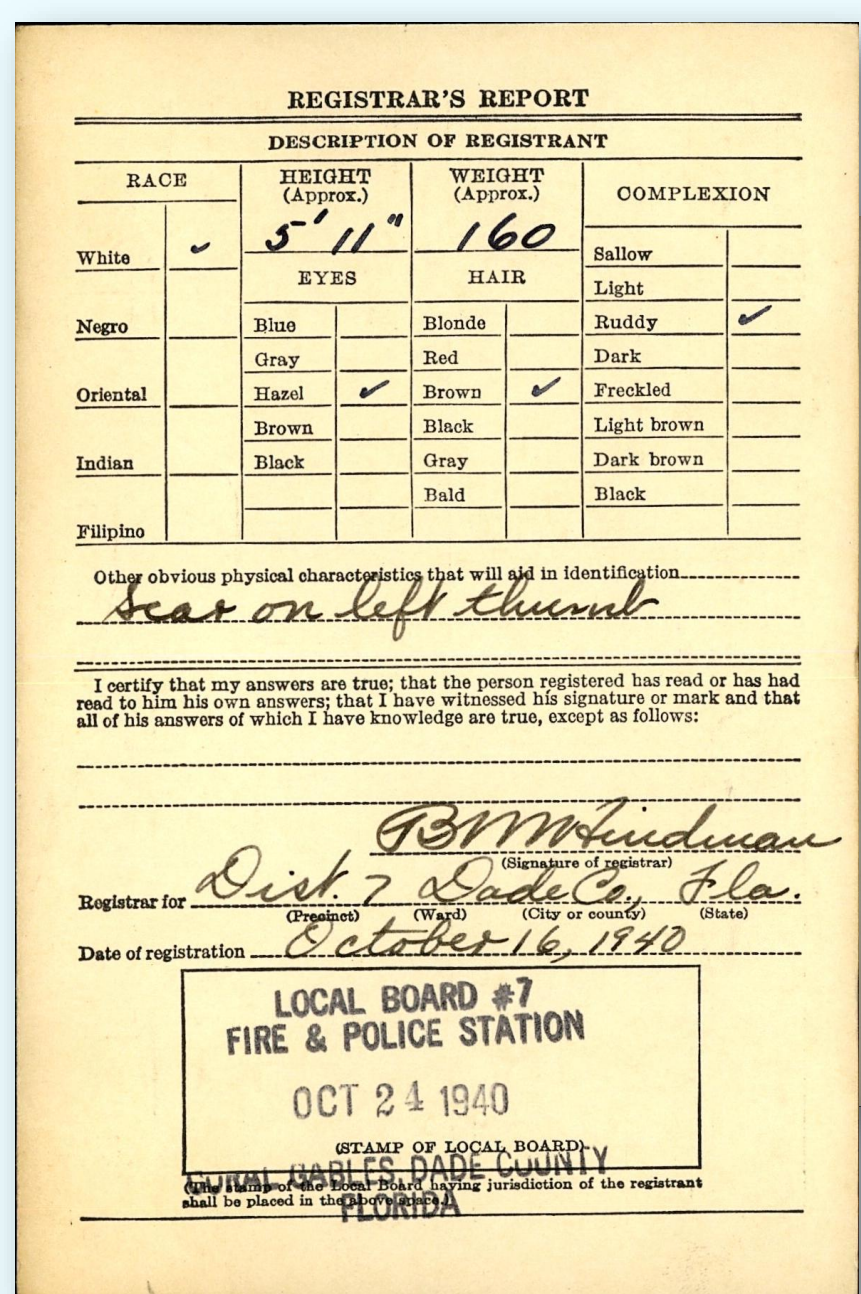 REGISTRAR'S REPORT
DESCRIPTION OF REGISTRANT
RACE
HEIGHT
(Approx.)
WEIGHT
(Approx.)
COMPLEXION
5' 11"
160
White ✓
EYES
HAIR
Sallow
Light
Negro
Blue
Blonde
Ruddy ✓
Gray
Red
Dark
Oriental
Hazel ✓
Brown ✓
Freckled
Brown
Black
Light brown
Indian
Black
Gray
Dark brown
Bald
Black
Filipino
Other obvious physical characteristics that will aid in identification
Scar on left thumb
I certify that my answers are true; that the person registered has read or has had
read to him his own answers; that I have witnessed his signature or mark and that
all of his answers of which I have knowledge are true, except as follows:
Hindman
(Signature of registrar)
Registrar for Dist. 7 Dade Co., Fla.
(Precinct) (Ward) (City or county) (State)
Date of registration October 16, 1940
LOCAL BOARD #7
FIRE & POLICE STATION
OCT 24 1940
(STAMP OF LOCAL BOARD)
CORAL GABLES DADE COUNTY
(The stamp of the Local Board having jurisdiction of the registrant
shall be placed in the above space.)
FLORIDA